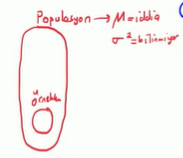 Populasyon → μ=iddia
σ²=bilinmiyor
Örneklem